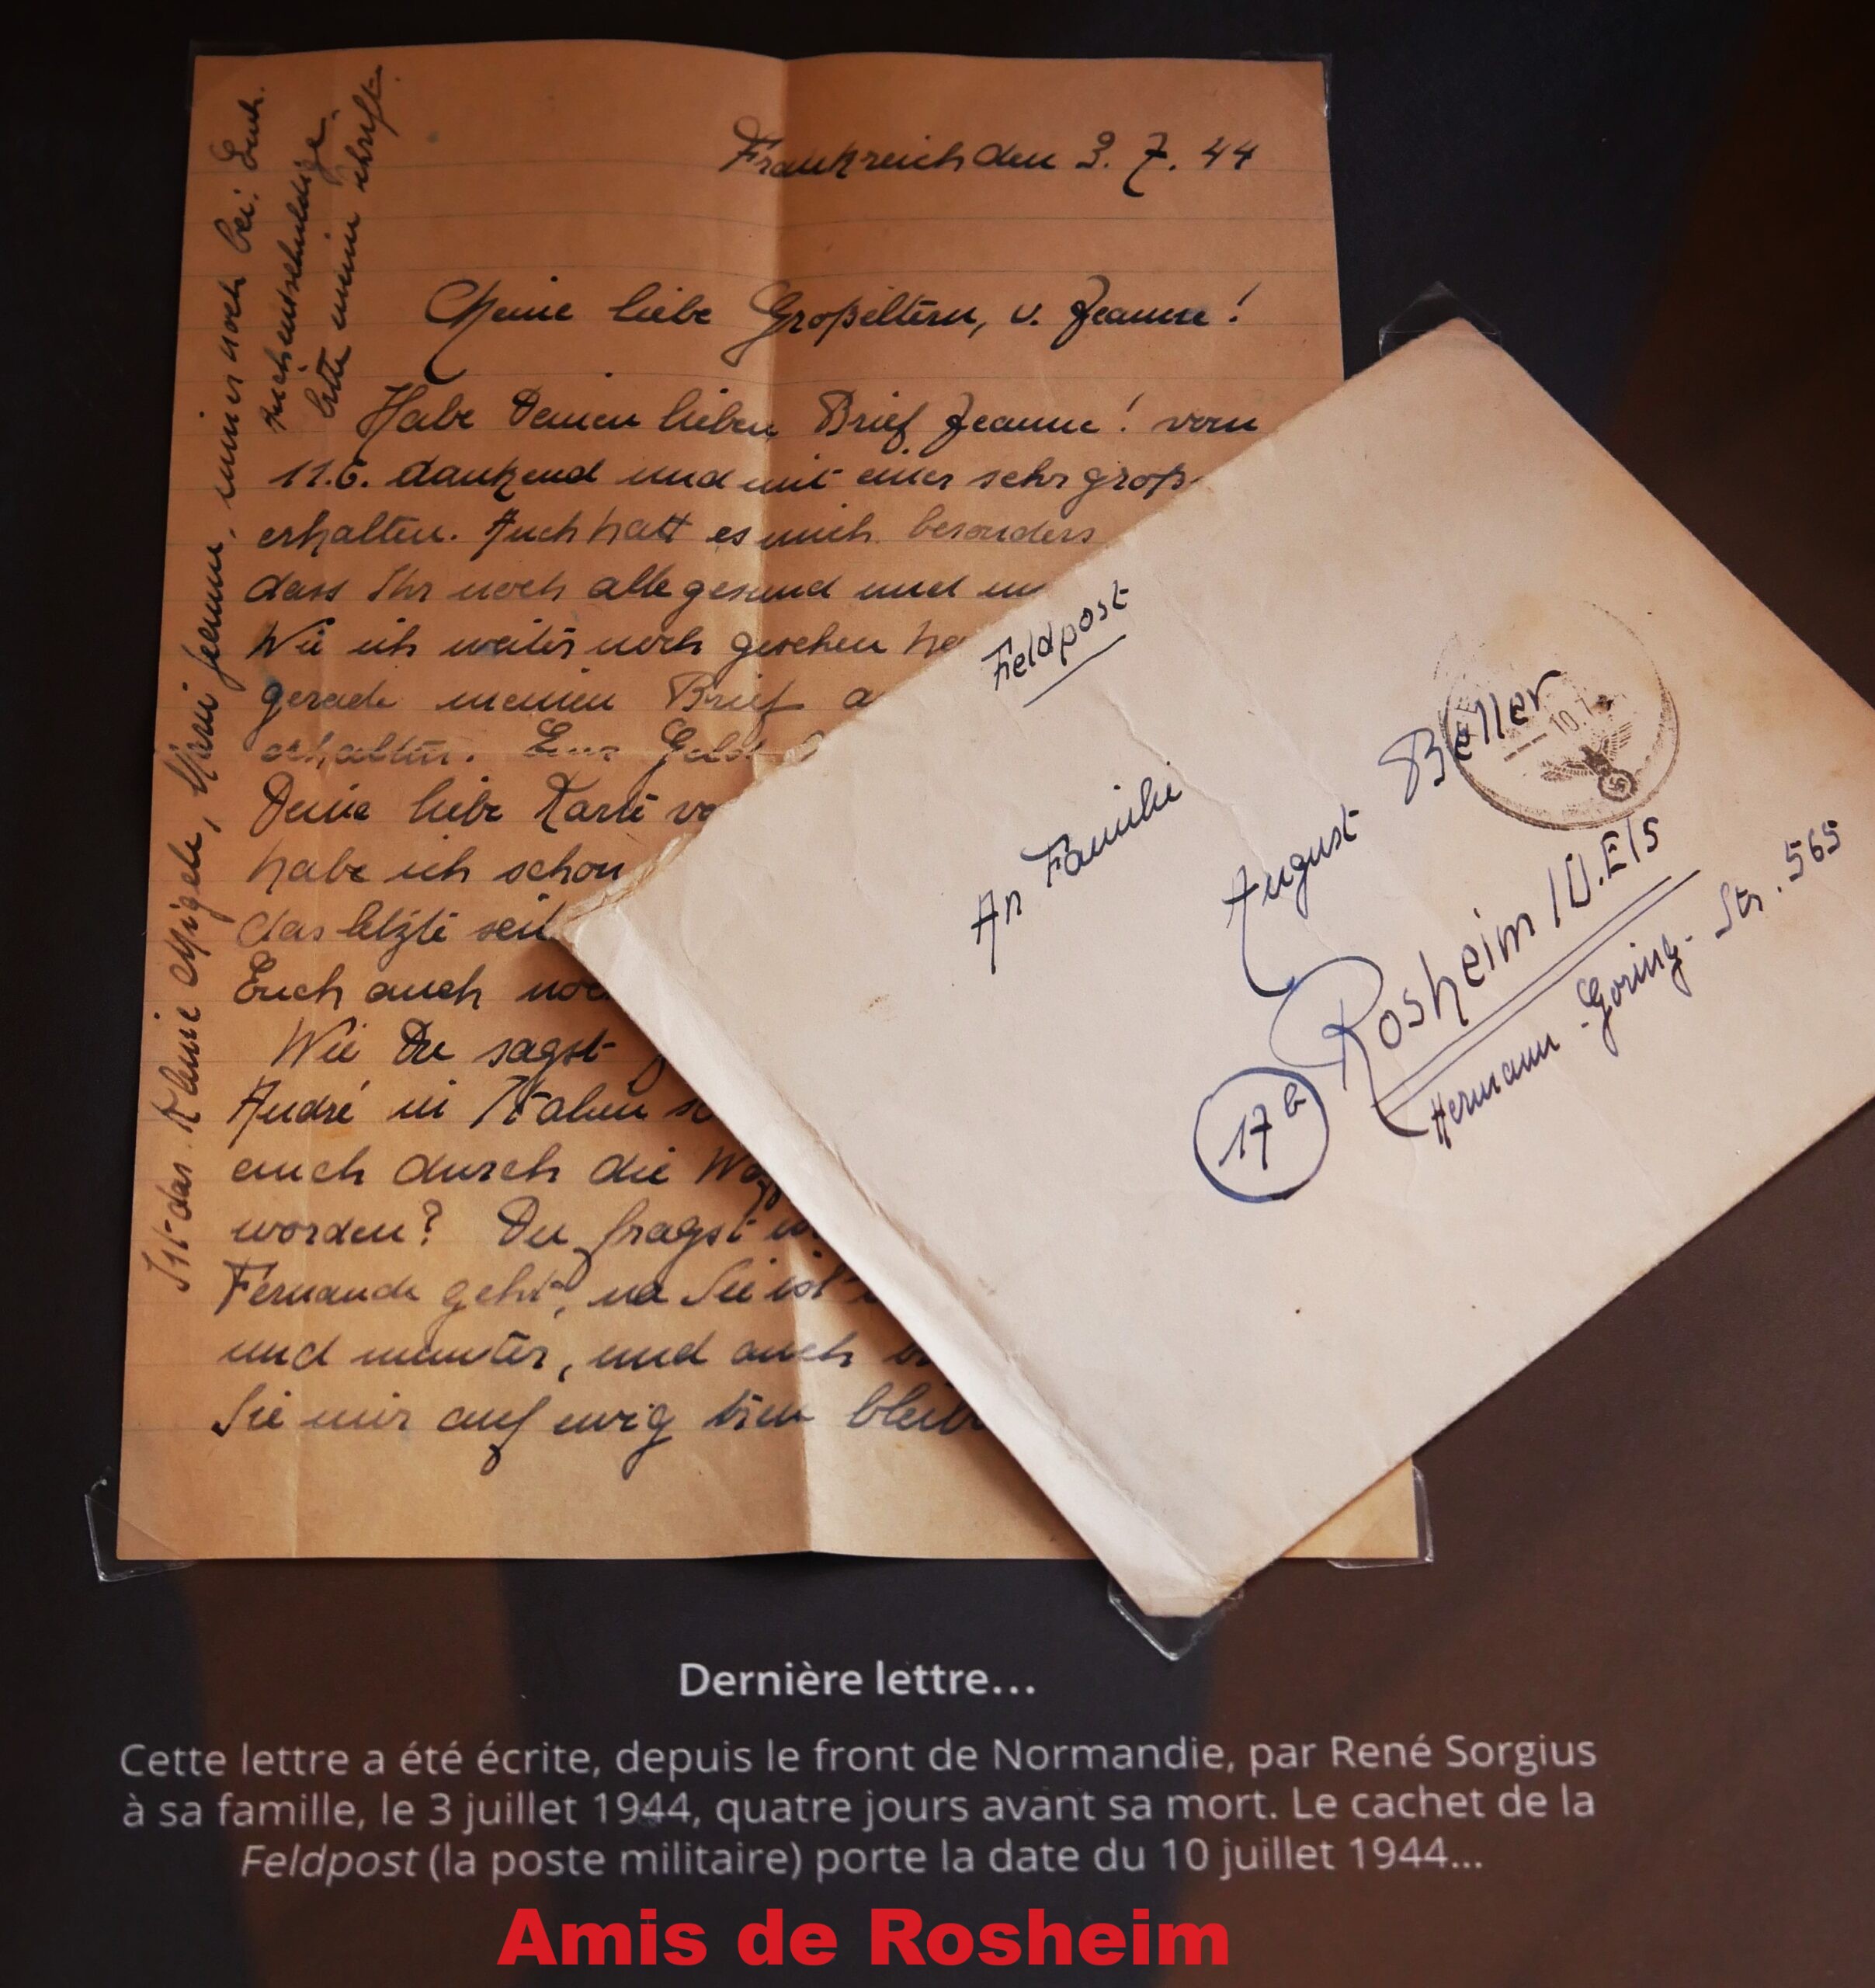 Frankreich den 3. 7. 44
Meine liebe Großeltern, u. Jeanne!
Habe Deinen lieben Brief Jeanne! vom
11.6. dankend und mit einer sehr groß
erhalten. Auch hatt es mich besonders
dass Ihr noch alle gesund und
Wie ich weiter noch gesehen ha
gerade meinen Brief a
erhalten. Geld
Deine liebe Karte vo
habe ich schon
das letzte seit
Euch auch noc
Wie Du sagst
André in Italien
auch durch die
worden? Du fragst
Fernande geht, na Sie ist
und munter, und auch
Sie mir auf ewig treu bleib
Ist das Kleine immer noch bei Euch.
Auch entschuldige
bitte meine schrift.
Feldpost
An Familie
August Beller
10.7
Rosheim /U.Els
17b
Hermann-Göring-Str. 565
Dernière lettre...
Cette lettre a été écrite, depuis le front de Normandie, par René Sorgius
à sa famille, le 3 juillet 1944, quatre jours avant sa mort. Le cachet de la
Feldpost (la poste militaire) porte la date du 10 juillet 1944...
Amis de Rosheim